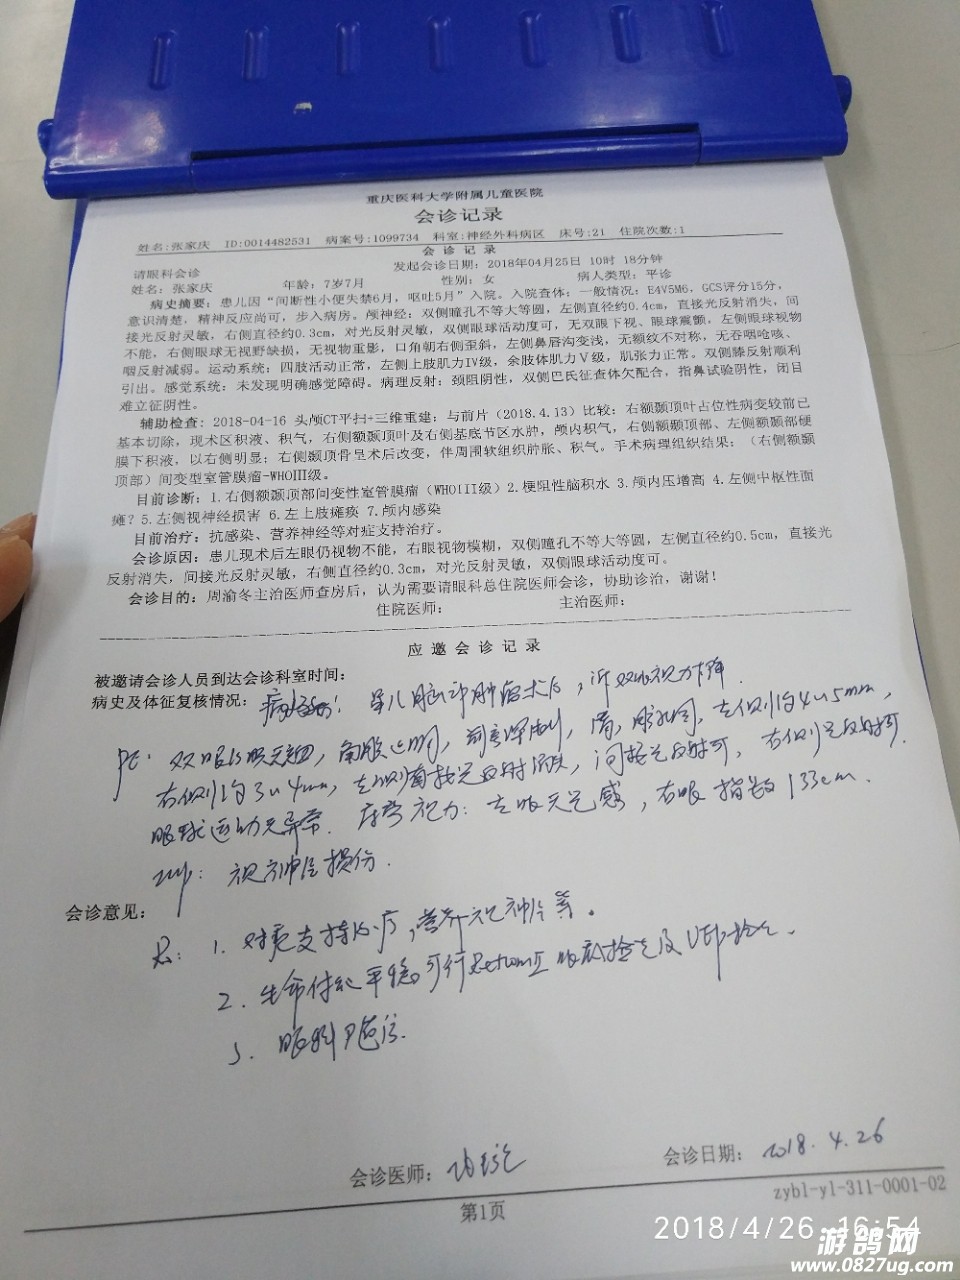 重庆医科大学附属儿童医院
会诊记录
姓名:张家庆 ID:0014482531 病案号:1099734 科室:神经外科病区 床号:21 住院次数:1
会 诊 记 录
请眼科会诊 发起会诊日期: 2018年04月25日 10时 18分钟
姓名: 张家庆 年龄: 7岁7月 性别: 女 病人类型: 平诊
病史摘要: 患儿因“间断性小便失禁6月,呕吐5月”入院。入院查体: 一般情况: E4V5M6, GCS评分15分,
意识清楚, 精神反应尚可, 步入病房。颅神经: 双侧瞳孔不等大等圆, 左侧直径约0.4cm, 直接光反射消失, 间
接光反射灵敏, 右侧直径约0.3cm, 对光反射灵敏, 双侧眼球活动度可, 无双眼下视、眼球震颤, 左侧眼球视物
不能, 右侧眼球无视野缺损, 无视物重影, 口角朝右侧歪斜, 左侧鼻唇沟变浅, 无额纹不对称, 无吞咽呛咳、
咽反射减弱。运动系统: 四肢活动正常, 左侧上肢肌力IV级, 余肢体肌力Ⅴ级, 肌张力正常。双侧膝反射顺利
引出。感觉系统: 未发现明确感觉障碍。病理反射: 颈阻阴性, 双侧巴氏征查体欠配合, 指鼻试验阴性, 闭目
难立征阴性。
辅助检查: 2018-04-16 头颅CT平扫+三维重建: 与前片 (2018.4.13) 比较: 右额颞顶叶占位性病变较前已
基本切除, 现术区积液、积气, 右侧额颞顶叶及右侧基底节区水肿, 颅内积气, 右侧额颞顶部、左侧额颞部硬
膜下积液, 以右侧明显; 右侧颞顶骨呈术后改变, 伴周围软组织肿胀、积气。手术病理组织结果: (右侧额颞
顶部) 间变型室管膜瘤-WHOⅢ级。
目前诊断: 1.右侧额颞顶部间变性室管膜瘤 (WHOIII级) 2.梗阻性脑积水 3.颅内压增高 4.左侧中枢性面
瘫? 5.左侧视神经损害 6.左上肢瘫痪 7.颅内感染
目前治疗: 抗感染、营养神经等对症支持治疗。
会诊原因: 患儿现术后左眼仍视物不能, 右眼视物模糊, 双侧瞳孔不等大等圆, 左侧直径约0.5cm, 直接光
反射消失, 间接光反射灵敏, 右侧直径约0.3cm, 对光反射灵敏, 双侧眼球活动度可。
会诊目的: 周渝冬主治医师查房后, 认为需要请眼科总住院医师会诊, 协助诊治, 谢谢!
住院医师: 主治医师:
应 邀 会 诊 记 录
被邀请会诊人员到达会诊科室时间:
病史及体征复核情况: 患儿脑部肿瘤术后, 诉双眼视力下降.
PE: 双眼结膜无充血, 角膜透明, 前房深, 瞳孔圆, 左侧约4~5mm,
右侧约3~4mm, 左侧直接光反射消失, 间接光反射可, 右侧光反射可.
眼球运动无异常. 床旁视力: 左眼无光感, 右眼指数/33cm.
Imp: 视神经损伤.
会诊意见:
R: 1. 对症支持治疗, 营养视神经等。
2. 生命体征平稳可行RetcamII眼底检查及VEP检查.
3. 眼科随访.
会诊医师: 会诊日期: 2018.4.26
zybl-yl-311-0001-02
第1页
2018/4/26 16:54
游鸽网
www.0827ug.com